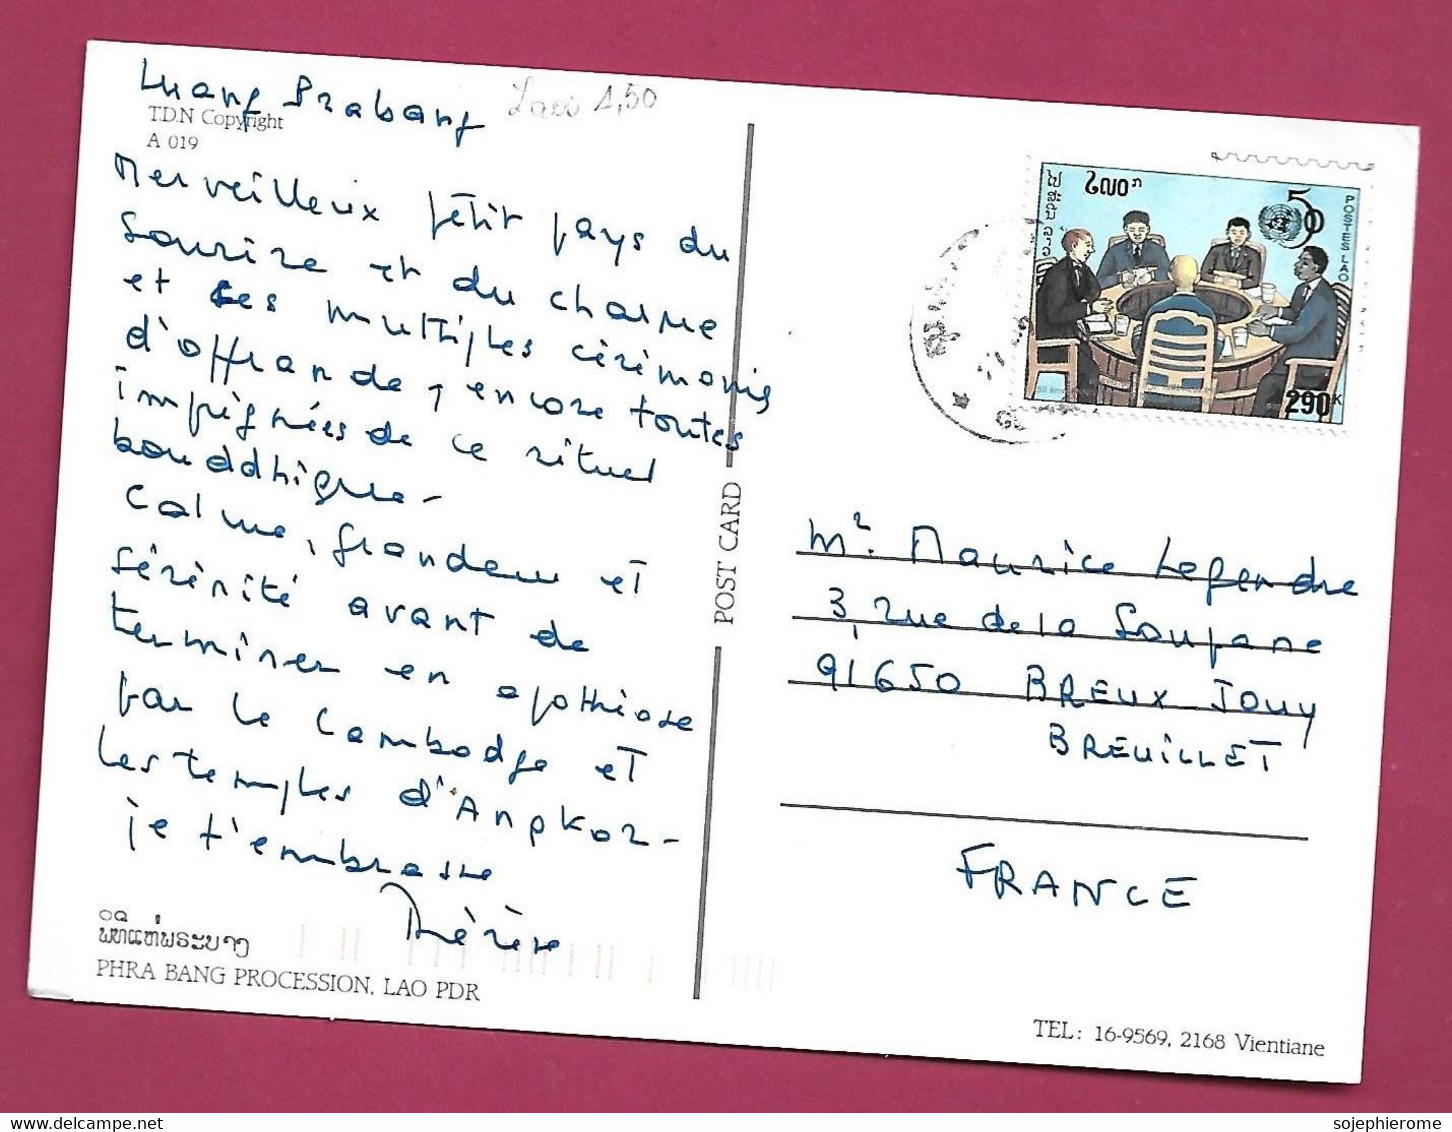 Luang Prabang
Laos 1,50
TDN Copyright
A 019
Merveilleux petit pays du
Sourire et du charme
et ses multiples cérémonies
d'offrande, encore toutes
imprégnées de ce rituel
bouddhique -
Calme, grandeur et
sérénité avant de
terminer en apothéose
par le Cambodge et
les temples d'Angkor -
je t'embrasse
Thérèse
ພິທີແຫ່ພຣະບາງ
PHRA BANG PROCESSION, LAO PDR
POST CARD
ໄປສະນີລາວ
50
POSTES LAO
290K
Mr. Maurice Legendre
3, rue de la Soupane
91650 BREUX-Jouy
BREUILLET
FRANCE
TEL: 16-9569, 2168 Vientiane
sojephierome